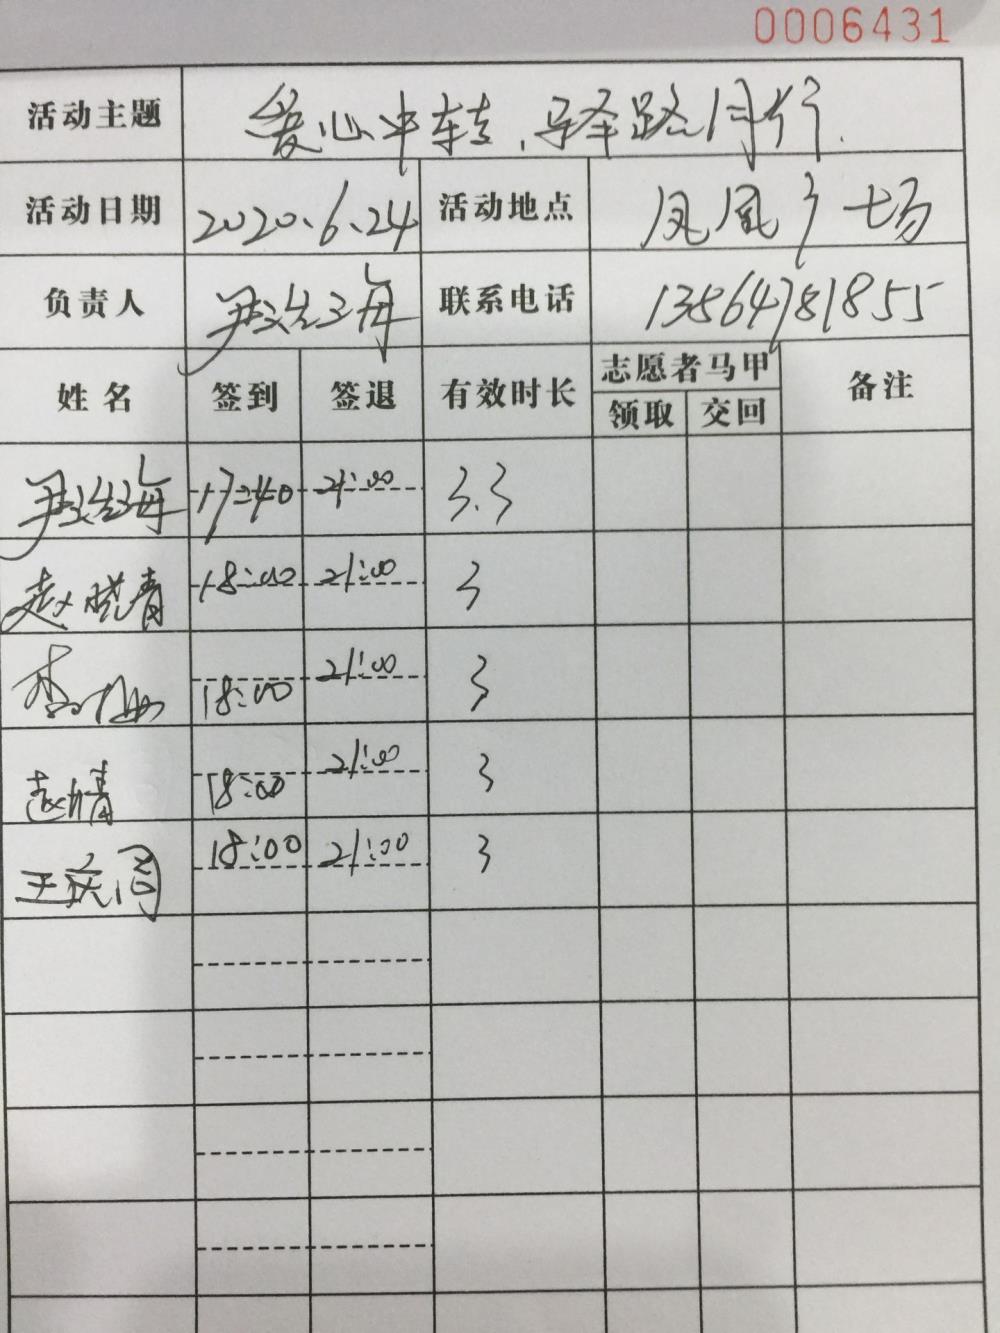 0006431
活动主题 爱心中转、驿路同行.
活动日期 2020.6.24 活动地点 凤凰广场
负责人 尹海 联系电话 13864781855
姓名 签到 签退 有效时长 志愿者马甲 备注
领取 交回
尹海 17:40 21:00 3.3
赵晓青 18:00 21:00 3
李 18:00 21:00 3
赵婧 18:00 21:00 3
王庆同 18:00 21:00 3